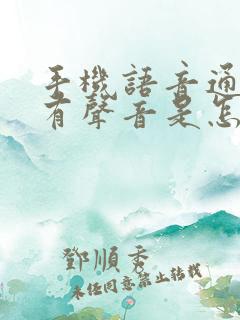 手機語音通
有聲音是怎
鄧順秀
未經同意禁止轉載